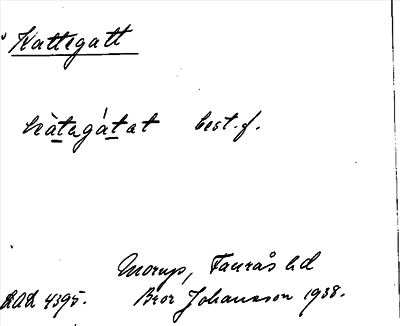 Kattegatt
kàtagátat best. f.
Morup, Faurås hd
LAL 4395. Bror Johansson 1938.